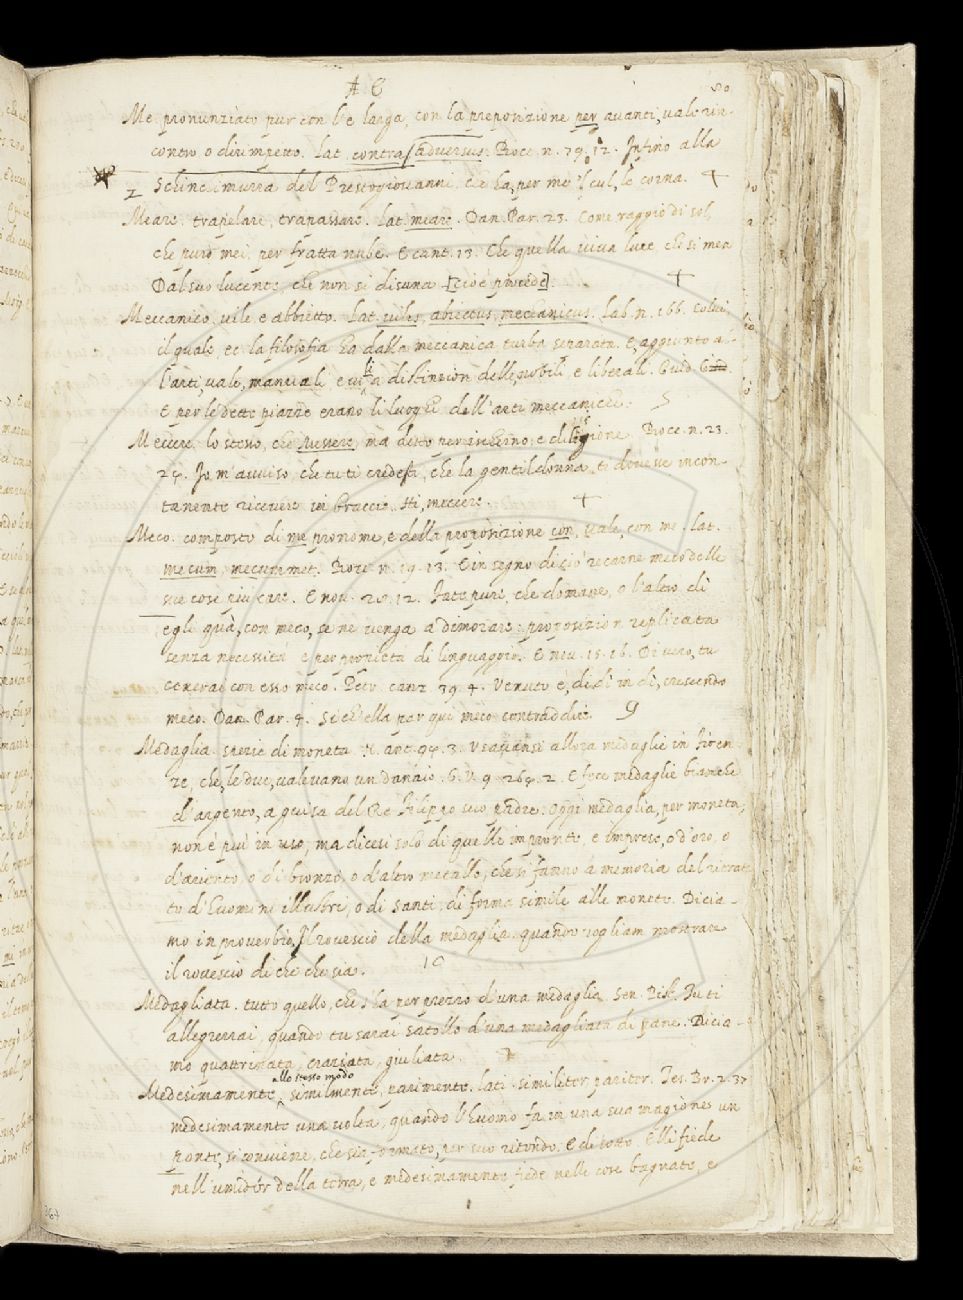 A E
80
Me. pronunziato pur con l'e larga, con la preposizione per avanti, vale rin-
contro o dirimpetto. lat. contra, adversus. Bocc. n. 79. 12. Infino alla
Schinchimurra del Prestogiovanni che ha, per me 'l cul, le corna.
Meare. trapelare, trapassare. lat. meare. Dan. Par. 23. Come raggio di sol,
che puro mei per fratta nube. E cant. 13. Che quella viva luce che si mea
Dal suo lucente, che non si disuna [cioè procede].
Meccanico, vile, e abbietto. lat. vilis, abiectus, meccanicus. Lab. n. 166. Colui,
il quale, ec. la filosofia ha dalla meccanica turba separata. E, aggiunto al-
l'arti, vale, manuali e vili a distinzion delle nobili e liberali. Guid. G.
E per le dette piazze erano li luoghi dell'arti meccaniche. 5
Mecere. lo stesso, che Messere, ma detto per ischerno, e Bocc. n. 23.
24. Io m'avviso che tu ti credesti, che la gentildonna ti dovesse incon-
tanente ricevere in braccio. Hi, meccere.
Meco. composto di me pronome, e della preposizione con, vale, con me. lat.
mecum, mecummet. Bocc. n. 19. 13. E in segno di ciò recarne meco delle
sue cose più care. E nov. 20. 12. Fate pure, che domane, o l'altro dì
egli quà, con meco, se ne venga a dimorare: preposizion replicata
senza necessità e per proprietà di linguaggio. E nov. 15. 16. Di vero, tu
cenerai con esso meco. Petr. canz. 39. 4. Venuto è, di dì in dì, crescendo
meco. Dan. Par. 4. Sich'ella par qui meco contraddire. 9
Medaglia. spezie di moneta. N. ant. 94. 3. Usavansi allora medaglie in Firen-
ze, che, le due, valevano un danaio. G. V. 9. 264. 2. E fece medaglie bianche
d'argento, a guisa del Re Filippo suo padre. Oggi medaglia, per moneta,
non è più in uso, ma dicesi solo di quelle impronte, e imprese, o d'oro, o
d'ariento, o di bronzo, o d'altro metallo, che si fanno a memoria del ritrat-
to d'Huomini illustri, o di Santi, di forma simile alle monete. Dicia-
mo in proverbio, Il rovescio della medaglia: quando vogliam mostrare
il rovescio di che che sia. 10
Medagliata. tutto quello, che s'ha per prezzo d'una medaglia. Sen. Pist. Tu ti
allegrerrai, quando tu sarai satollo d'una medagliata di pane. Dicia-
mo quattrinata, craziata, giuliata.
allo stesso modo
Medesimamente, similmente, parimente. lat. similiter, pariter. Tes. Br. 2. 37
medesimamente una volta, quando l'huomo fa in una sua magione un
ponte, si conviene, che sia formato, per suo ritondo. E di sotto. Elli fiede
nell'umidor della terra, e medesimamente fiede nelle cose bagnate, e
264